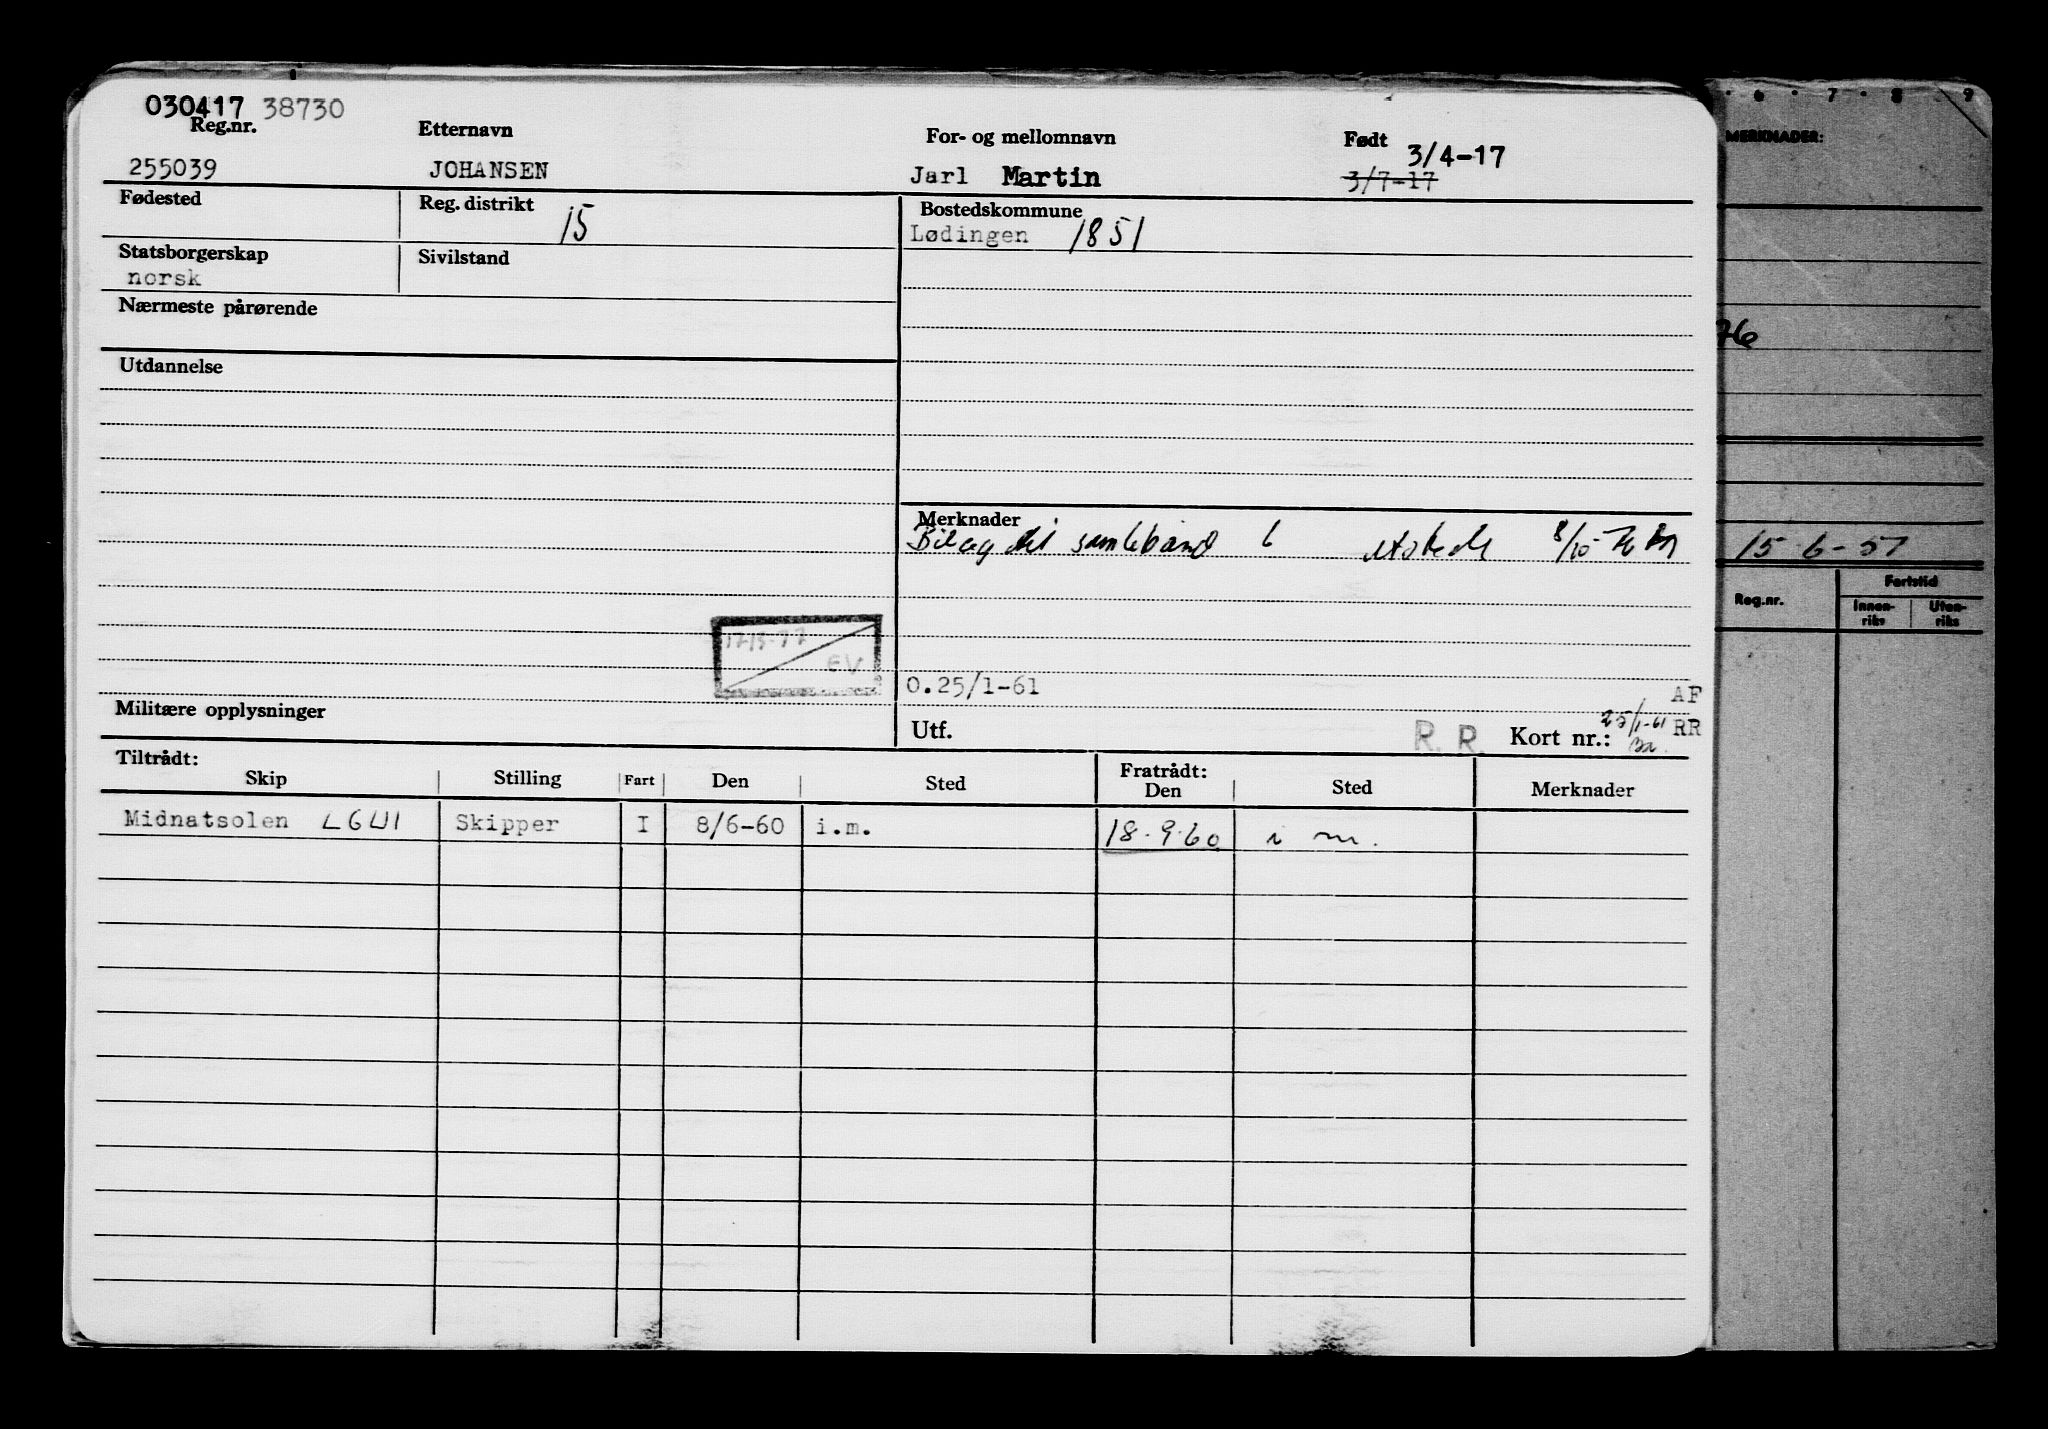 030417 38730
Reg.nr. Etternavn For- og mellomnavn Født 3/4-17
255039 JOHANSEN Jarl Martin 3/7-17
Fødested Reg. distrikt 15 Bostedskommune
Lødingen 1851
Statsborgerskap Sivilstand
norsk
Nærmeste pårørende
Utdannelse
Merknader
Bilag til samlebånd 6 8/10-76
EV
0.25/1-61 AF
Militære opplysninger Utf. R. R. Kort nr.: 25/1-61 RR
Tiltrådt: Fratrådt:
Skip Stilling Fart Den Sted Den Sted Merknader
Midnatsolen LGUI Skipper I 8/6-60 i.m. 18.9.60 i m.
6 7 8 9
MERKNADER:
76
15-6-57
Reg.nr. Fartstid
Innen-riks Uten-riks